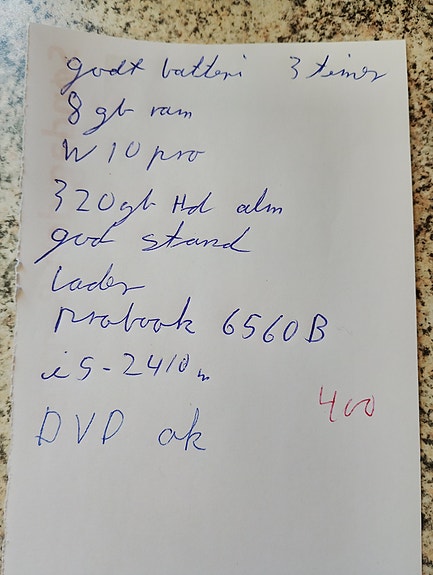 godt batteri 3 timer
8 gb ram
W 10 pro
320 gb Hd alm
god stand
lader
probook 6560B
i5-2410m
400
DVD ok